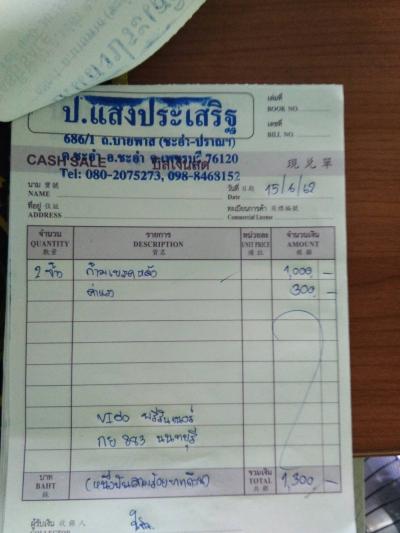 ป.แสงประเสริฐ
686/1 ถ.บายพาส (ชะอำ-ปราณฯ)
ต.ชะอำ อ.ชะอำ จ.เพชรบุรี 76120
Tel: 080-2075273, 098-8468152
เล่มที่
BOOK NO.
เลขที่
BILL NO.
CASH SALE บิลเงินสด 現兌單
นาม 寶號
NAME
วันที่ 日期 15/6/62
Date
ที่อยู่ 住址
ADDRESS
ทะเบียนการค้า 商標編號
Commercial License
จำนวน รายการ หน่วยละ จำนวนเงิน
QUANTITY DESCRIPTION UNIT PRICE AMOUNT
數量 貨名 價目 銀額
2 ก้ามเบรคหลัง 1,000 -
ค่าแรง 300 -
กย 883 นนทบุรี
บาท
BAHT
銖
(หนึ่งพันสามร้อยบาทถ้วน)
รวมเงิน
TOTAL
共銀
1,300 -
ผู้รับเงิน 收銀人
COLLECTOR